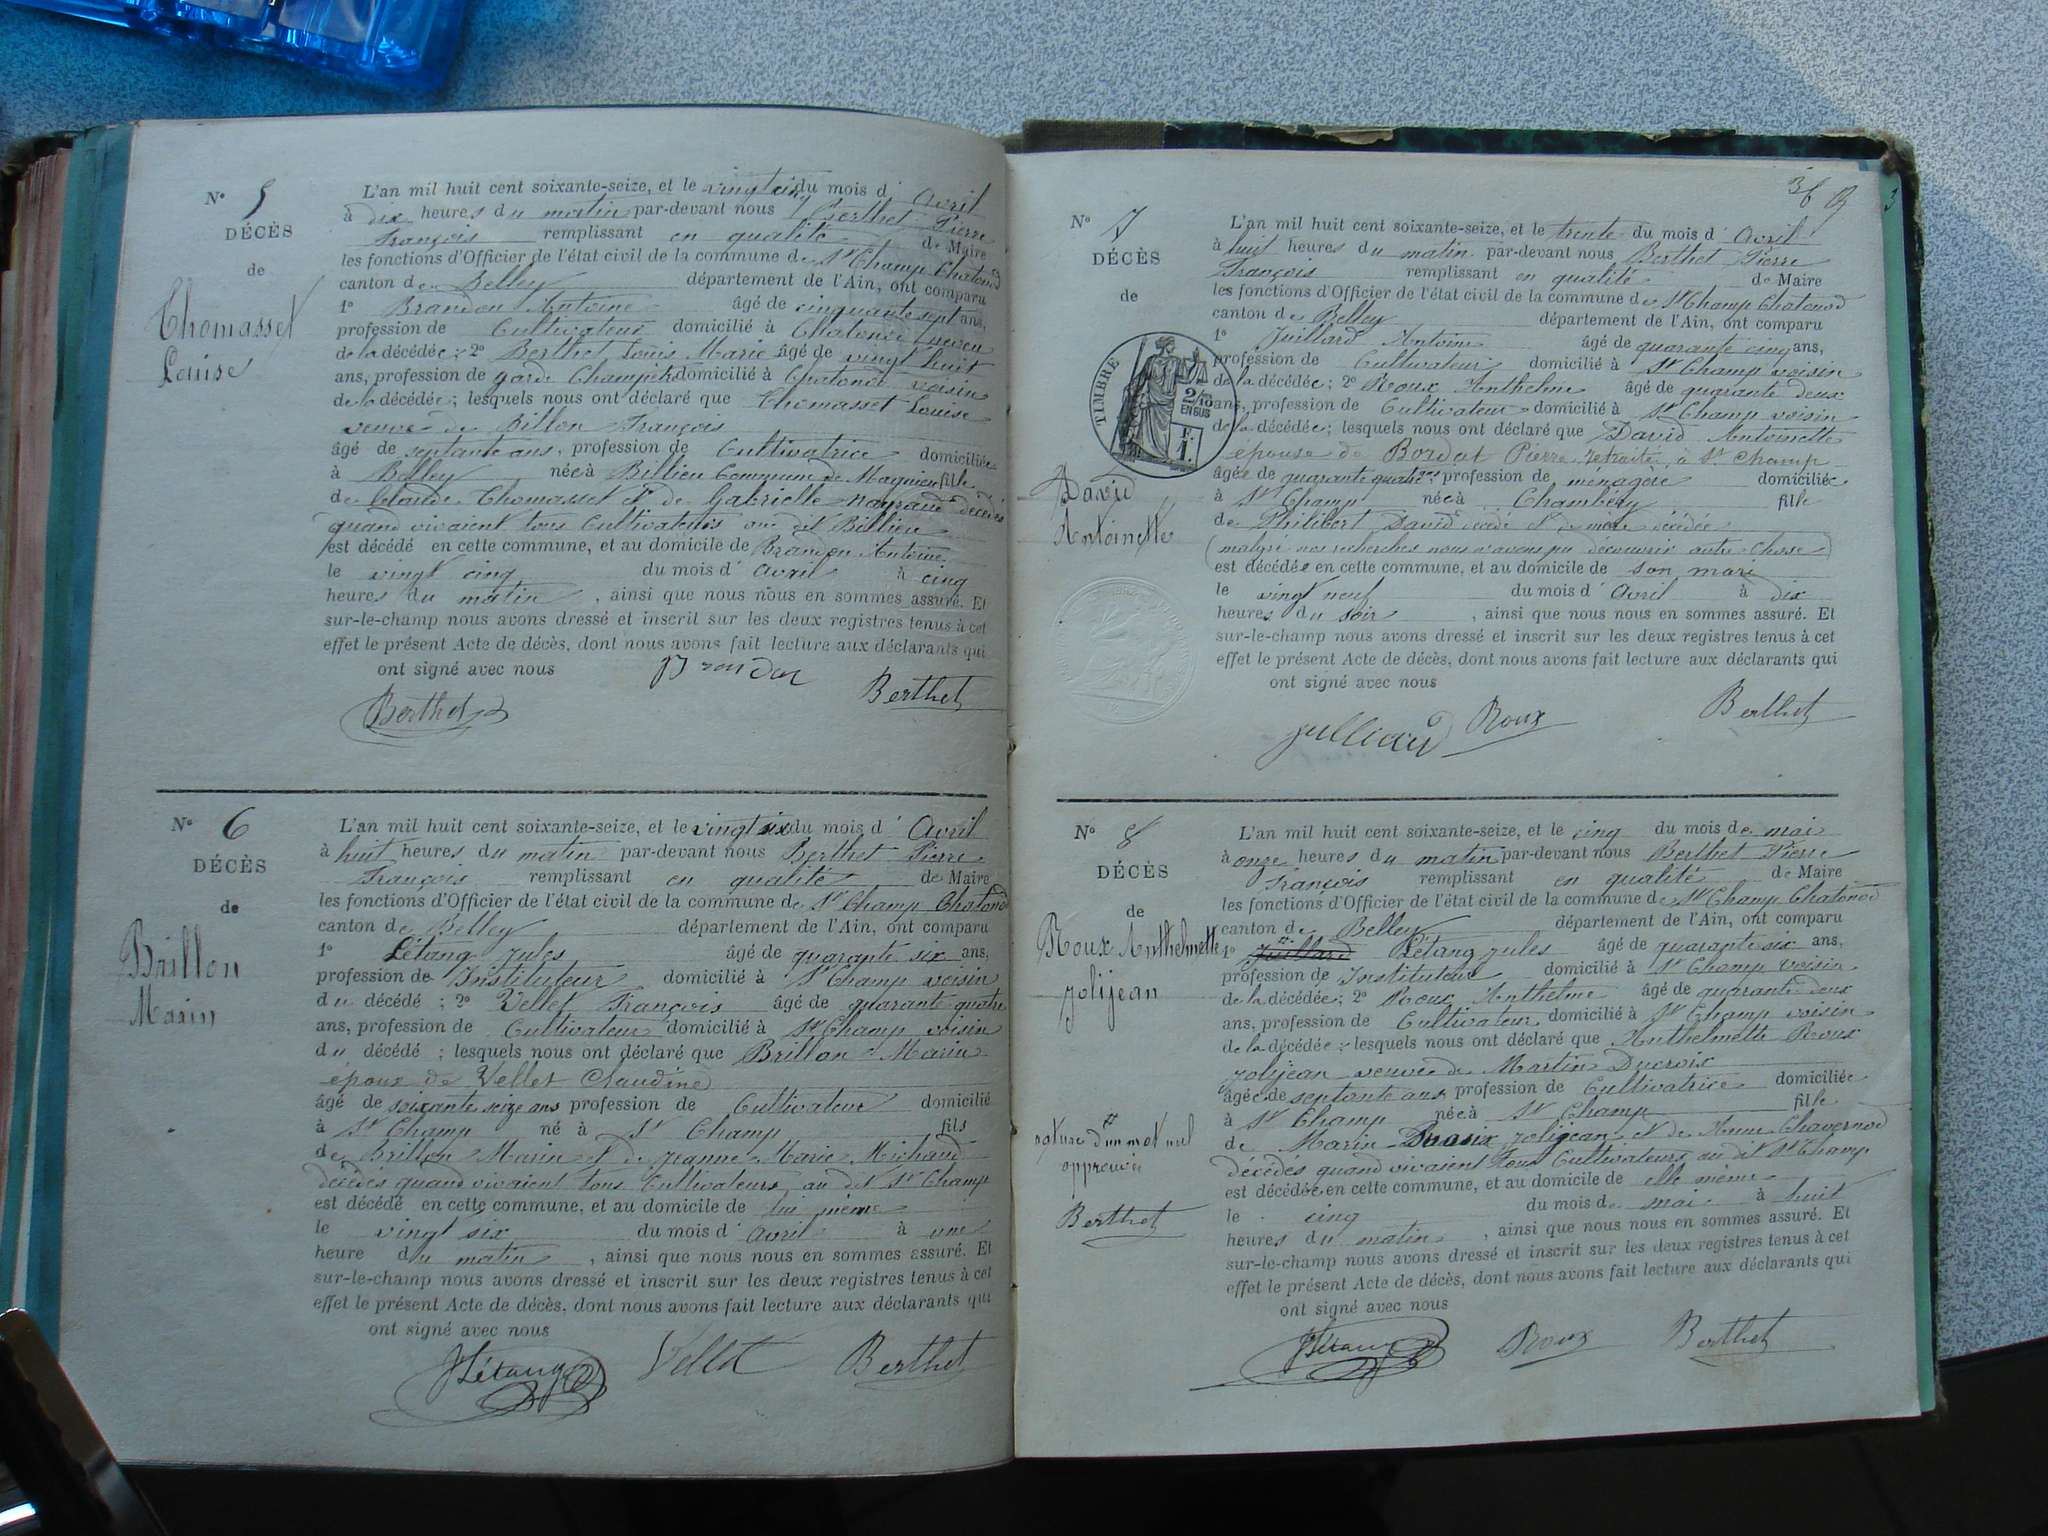 N° 5
DÉCÈS
de
Thomasset
Louise
L'an mil huit cent soixante-seize, et le vingt cinq du mois d'Avril
à dix heures du matin par-devant nous Berthet Pierre
François remplissant en qualité de Maire
les fonctions d'Officier de l'état civil de la commune de St Champ Chatonod
canton de Belley département de l'Ain, ont comparu
1° Brandon Antoine âgé de cinquante sept ans,
profession de Cultivateur domicilié à Chatonod neveu
de la décédée; 2° Berthet Louis Marie âgé de vingt huit
ans, profession de garde Champêtre domicilié à Chatonod voisin
de la décédée; lesquels nous ont déclaré que Thomasset Louise
veuve de Billon François
âgé de septante ans, profession de Cultivatrice domiciliée
à Belley née à Billieu Commune de Magnieu fille
de Claude Thomasset et de Gabrielle décédés
quand vivaient tous Cultivateurs au dit Billieu
est décédé en cette commune, et au domicile de Brandon Antoine
le vingt cinq du mois d'Avril à cinq
heures du matin, ainsi que nous nous en sommes assuré. Et
sur-le-champ nous avons dressé et inscrit sur les deux registres tenus à cet
effet le présent Acte de décès, dont nous avons fait lecture aux déclarants qui
ont signé avec nous
Brandon
Berthet
Berthet
N° 6
DÉCÈS
de
Brillon
Marin
L'an mil huit cent soixante-seize, et le vingt six du mois d'Avril
à huit heures du matin par-devant nous Berthet Pierre
François remplissant en qualité de Maire
les fonctions d'Officier de l'état civil de la commune de St Champ Chatonod
canton de Belley département de l'Ain, ont comparu
1° Létang Jules âgé de quarante six ans,
profession de Instituteur domicilié à St Champ voisin
du décédé; 2° Vellet François âgé de quarante quatre
ans, profession de Cultivateur domicilié à St Champ voisin
du décédé; lesquels nous ont déclaré que Brillon Marin
époux de Vellet Claudine
âgé de soixante seize ans profession de Cultivateur domicilié
à St Champ né à St Champ fils
de Brillon Marin et de Jeanne Marie Michaud
décédés quand vivaient tous Cultivateurs au dit St Champ
est décédé en cette commune, et au domicile de lui même
le vingt six du mois d'Avril à une
heure du matin, ainsi que nous nous en sommes assuré. Et
sur-le-champ nous avons dressé et inscrit sur les deux registres tenus à cet
effet le présent Acte de décès, dont nous avons fait lecture aux déclarants qui
ont signé avec nous
JLétang Vellet Berthet
36
N° 7
DÉCÈS
de
TIMBRE
2/10
EN SUS
F.
1.
David
Antoinette
L'an mil huit cent soixante-seize, et le trente du mois d'Avril
à huit heures du matin par-devant nous Berthet Pierre
François remplissant en qualité de Maire
les fonctions d'Officier de l'état civil de la commune de St Champ Chatonod
canton de Belley département de l'Ain, ont comparu
1° Juillard Antoine âgé de quarante cinq ans,
profession de Cultivateur domicilié à St Champ voisin
de la décédée; 2° Roux Anthelme âgé de quarante deux
ans, profession de Cultivateur domicilié à St Champ voisin
de la décédée; lesquels nous ont déclaré que David Antoinette
épouse de Bordat Pierre retraité à St Champ
âgée de quarante quatre ans profession de ménagère domiciliée
à St Champ née à Chambéry fille
de Philibert David décédé et de mère décédée
(malgré nos recherches nous n'avons pu découvrir autre chose)
est décédée en cette commune, et au domicile de son mari
le vingt neuf du mois d'Avril à dix
heures du soir, ainsi que nous nous en sommes assuré. Et
sur-le-champ nous avons dressé et inscrit sur les deux registres tenus à cet
effet le présent Acte de décès, dont nous avons fait lecture aux déclarants qui
ont signé avec nous
Julliard Roux Berthet
N° 8
DÉCÈS
de
Roux Anthelmette
Jolijean
rature d'un mot nul
approuvée
Berthet
L'an mil huit cent soixante-seize, et le cinq du mois de mai
à onze heures du matin par-devant nous Berthet Pierre
François remplissant en qualité de Maire
les fonctions d'Officier de l'état civil de la commune de St Champ Chatonod
canton de Belley département de l'Ain, ont comparu
1° Juillard Létang Jules âgé de quarante six ans,
profession de Instituteur domicilié à St Champ voisin
de la décédée; 2° Roux Anthelme âgé de quarante deux
ans, profession de Cultivateur domicilié à St Champ voisin
de la décédée; lesquels nous ont déclaré que Anthelmette Roux
Jolijean veuve de Martin Ducroix
âgée de septante ans profession de Cultivatrice domiciliée
à St Champ née à St Champ fille
de Marin Jolijean et de Anne Chavernod
décédés quand vivaient tous Cultivateurs au dit St Champ
est décédée en cette commune, et au domicile de elle même
le cinq du mois de mai à huit
heures du matin, ainsi que nous nous en sommes assuré. Et
sur-le-champ nous avons dressé et inscrit sur les deux registres tenus à cet
effet le présent Acte de décès, dont nous avons fait lecture aux déclarants qui
ont signé avec nous
JLétang Roux Berthet